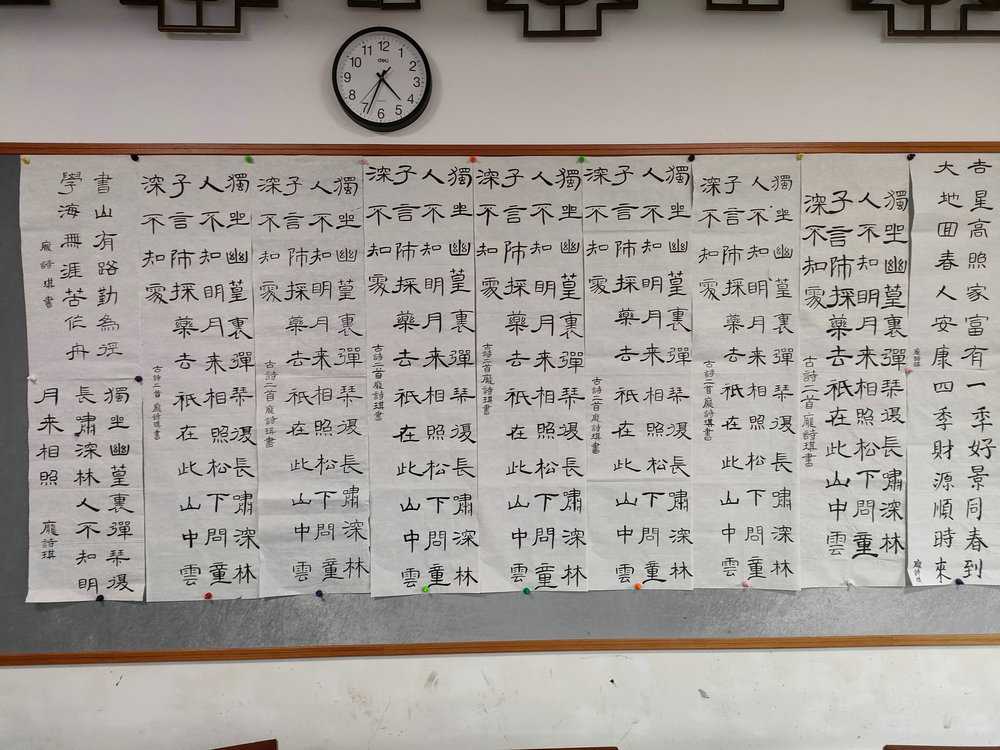 12
1
2
3
4
5
6
7
8
9
10
11
deli
吉星高照家富有一秊好景同春到
大地囬春人安康四季財源順時來
龐詩琪
獨坐幽篁裏彈琴復長嘯深林
人不知明月来相照松下問童
子言師採藥去祇在此山中雲
深不知處
古詩二首龐詩琪書
獨坐幽篁裏彈琴復長嘯深林
人不知明月来相照松下問童
子言師採藥去祇在此山中雲
深不知處
古詩二首龐詩琪書
獨坐幽篁裏彈琴復長嘯深林
人不知明月来相照松下問童
子言師採藥去祇在此山中雲
深不知處
古詩二首龐詩琪書
獨坐幽篁裏彈琴復長嘯深林
人不知明月来相照松下問童
子言師採藥去祇在此山中雲
深不知處
古詩二首龐詩琪書
獨坐幽篁裏彈琴復長嘯深林
人不知明月来相照松下問童
子言師採藥去祇在此山中雲
深不知處
古詩二首龐詩琪書
獨坐幽篁裏彈琴復長嘯深林
人不知明月来相照松下問童
子言師採藥去祇在此山中雲
深不知處
古詩二首龐詩琪書
獨坐幽篁裏彈琴復長嘯深林
人不知明月来相照松下問童
子言師採藥去祇在此山中雲
深不知處
古詩二首龐詩琪書
書山有路勤為徑
學海無涯苦作舟
龐詩琪書
獨坐幽篁裏彈琴復
長嘯深林人不知明
月来相照
龐詩琪